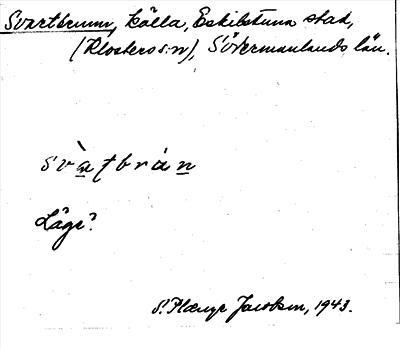 Svartbrunn, källa, Eskilstuna stad,
(Klosters s:n), Södermanlands län.
svàtbràn
Läge?
S. Jacobsen, 1943.